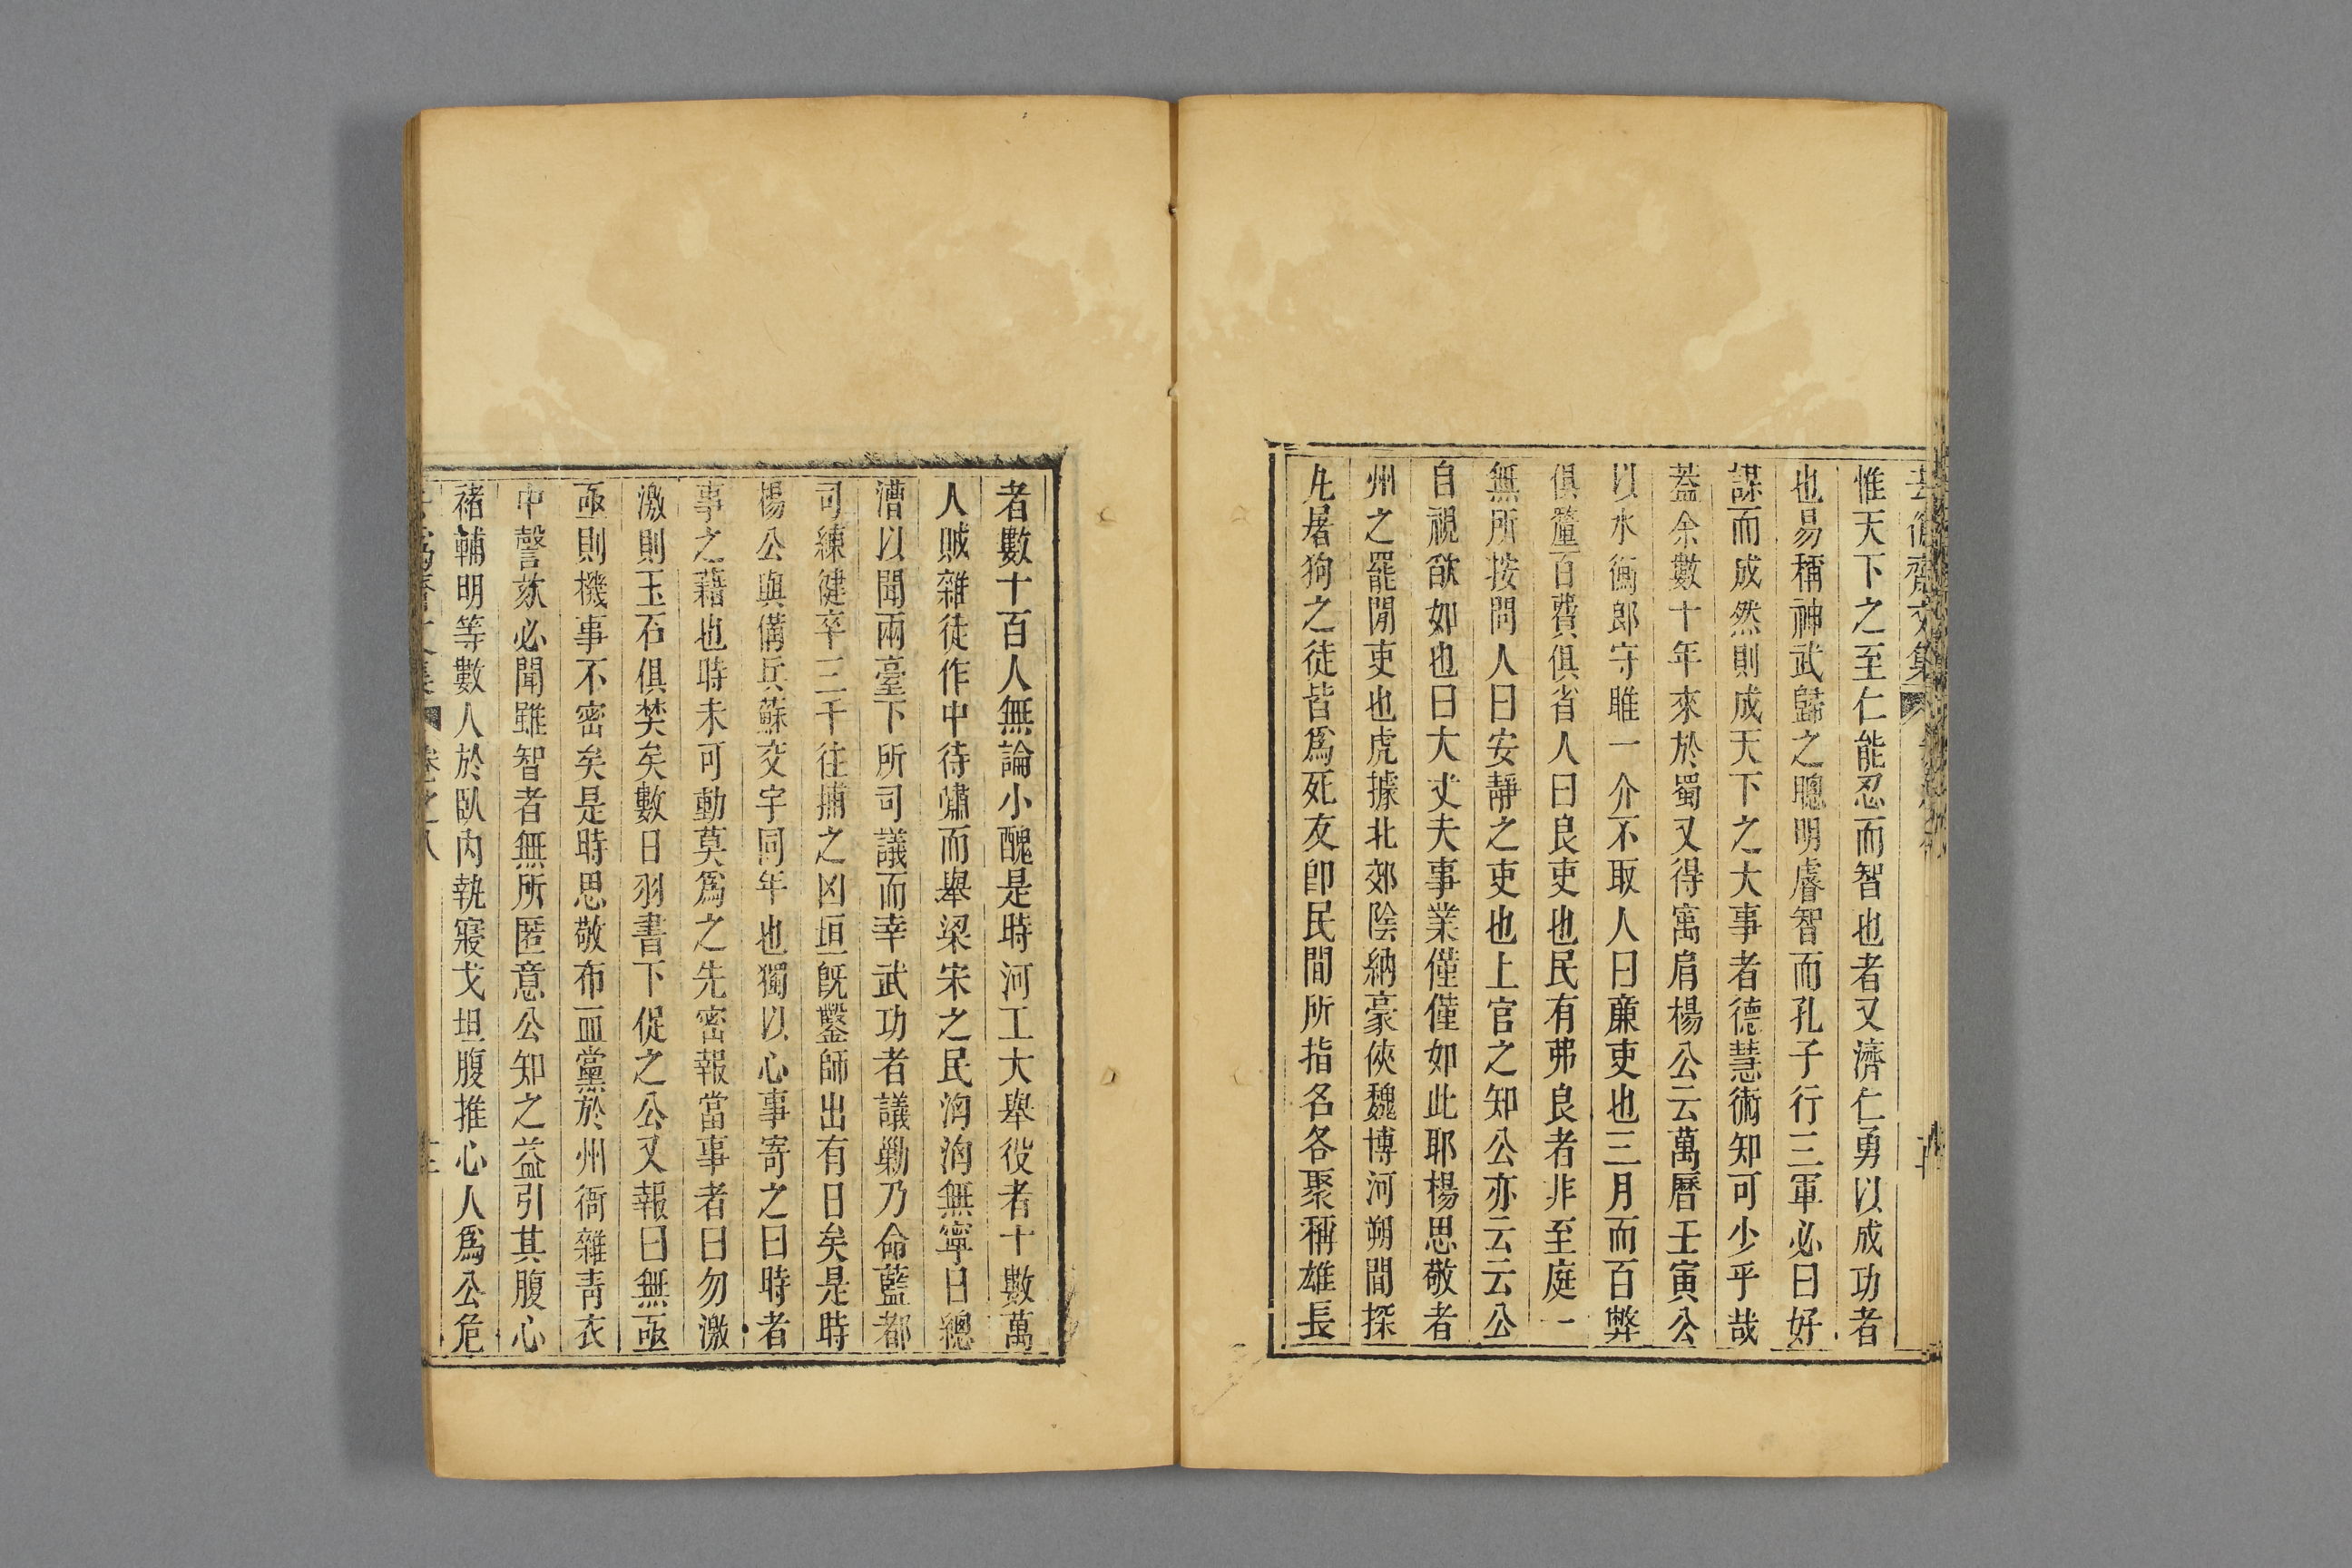 惟天下之至仁能忍而智也者又濟仁勇以成功者
也易稱神武歸之聰明睿智而孔子行三軍必曰好
謀而成然則成天下之大事者德慧術知可少乎哉
蓋余數十年來於蜀又得寓肩楊公云萬曆壬寅公
以水衡郎守雎一介不取人曰亷吏也三月而百弊
俱釐百費俱省人曰良吏也民有弗良者非至庭一
無所按問人曰安靜之吏也上官之知公亦云云公
自視欿如也曰大丈夫事業僅僅如此耶楊思敬者
州之罷閒吏也虎據北郊陰納豪俠魏博河朔間探
丸屠狗之徒皆爲死友卽民間所指名各聚稱雄長
者數十百人無論小醜是時河工大舉役者十數萬
人賊雜徒作中待嘯而舉梁宋之民洶洶無寧日總
漕以聞兩臺下所司議而幸武功者議勦乃命藍都
司練健卒三千往捕之凶垣旣鑿師出有日矣是時
楊公與備兵蘇交宇同年也獨以心事寄之曰時者
事之藉也時未可動莫爲之先密報當事者曰勿激
激則玉石俱焚矣數日羽書下促之公又報曰無亟
亟則機事不密矣是時思敬布血黨於州衙雜靑衣
中謦欬必聞雖智者無所匿意公知之益引其腹心
褚輔明等數人於臥內執寢戈坦腹推心人爲公危